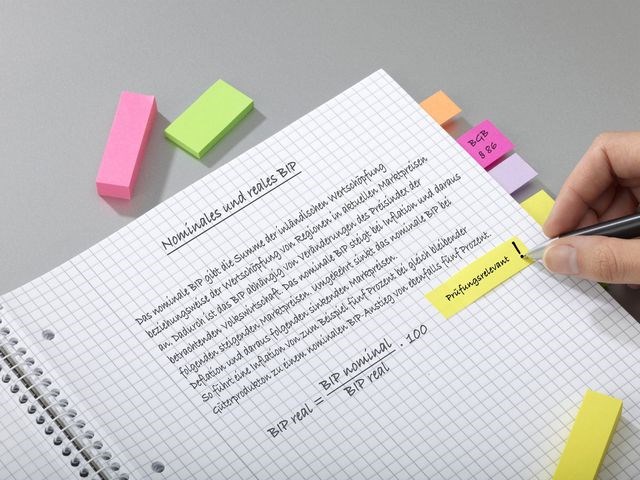 Nominales und reales BIP
Das nominale BIP gibt die Summe der inländischen Wertschöpfung
beziehungsweise der Wertschöpfung von Regionen in aktuellen Marktpreisen
an. Dadurch ist das BIP abhängig von Veränderungen des Preisindex der
betrachtenden Volkswirtschaft. Das nominale BIP steigt bei Inflation und daraus
folgenden steigenden Marktpreisen. Umgekehrt sinkt das nominale BIP bei
Deflation und daraus folgenden sinkenden Marktpreisen.
So führt eine Inflation von zum Beispiel fünf Prozent bei gleich bleibender
Güterproduktion zu einem nominalen BIP-Anstieg von ebenfalls fünf Prozent.
BIP real = BIP nominal / BIP real . 100
BGB
§ 86
Prüfungsrelevant !